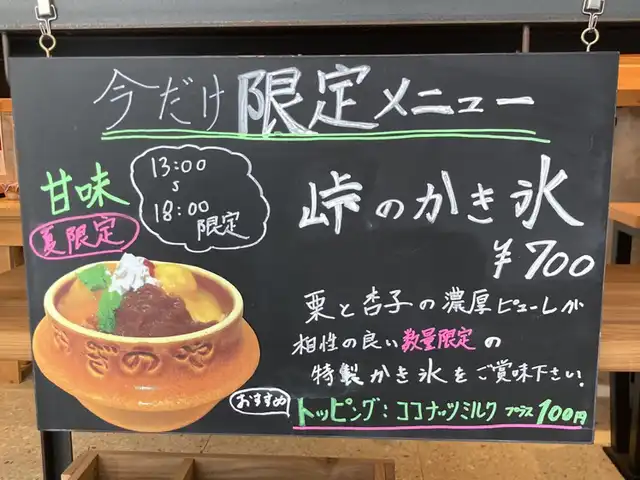 今だけ限定メニュー
甘味
夏限定
13:00
〜
18:00
限定
峠のかき氷
¥700
栗と杏子の濃厚ピューレが
相性の良い数量限定の
特製かき氷をご賞味下さい!
おすすめ
トッピング:ココナッツミルク プラス100円